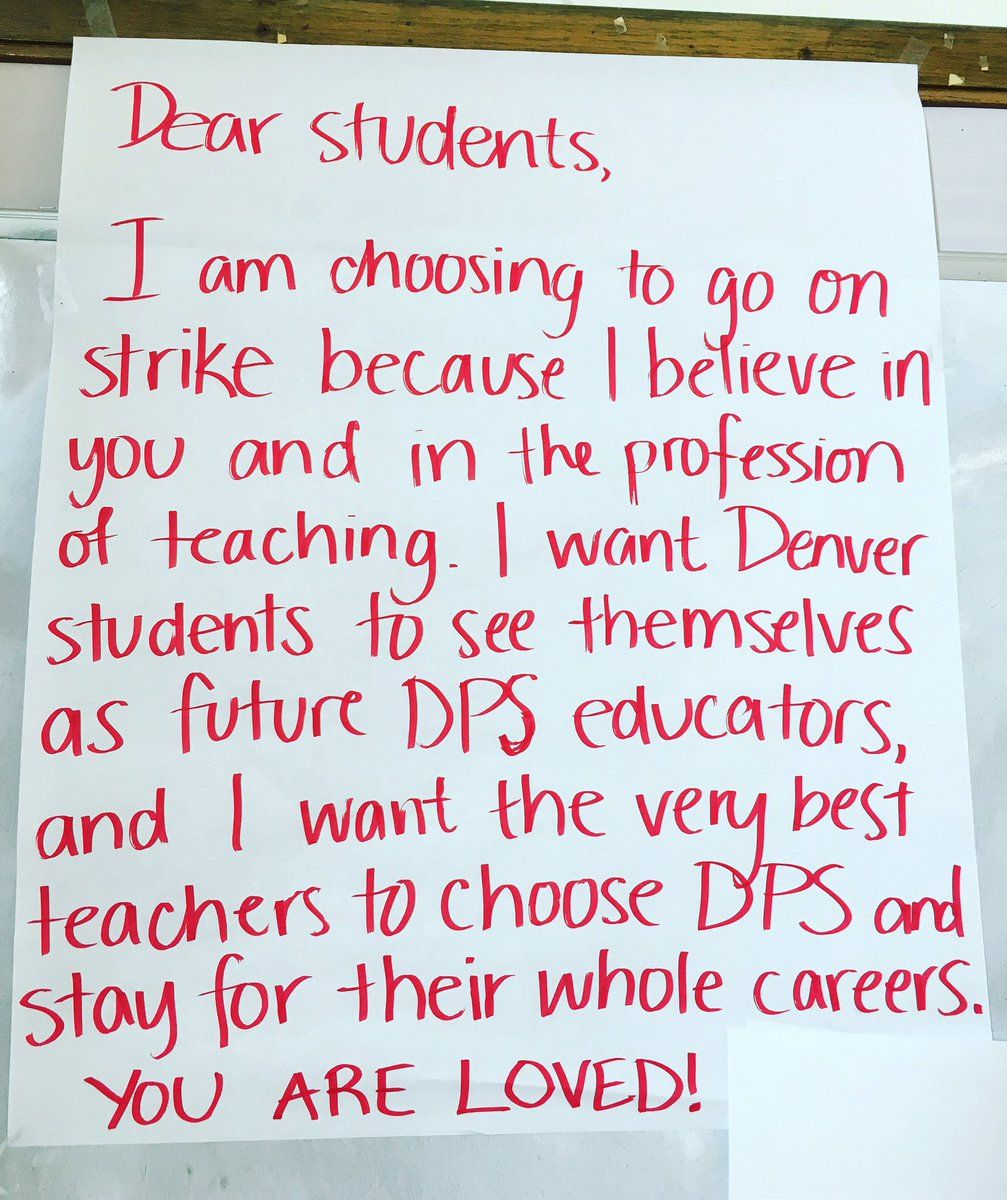 Dear students,
I am choosing to go on
strike because I believe in
you and in the profession
of teaching. I want Denver
students to see themselves
as future DPS educators,
and I want the very best
teachers to choose DPS and
stay for their whole careers.
YOU ARE LOVED!